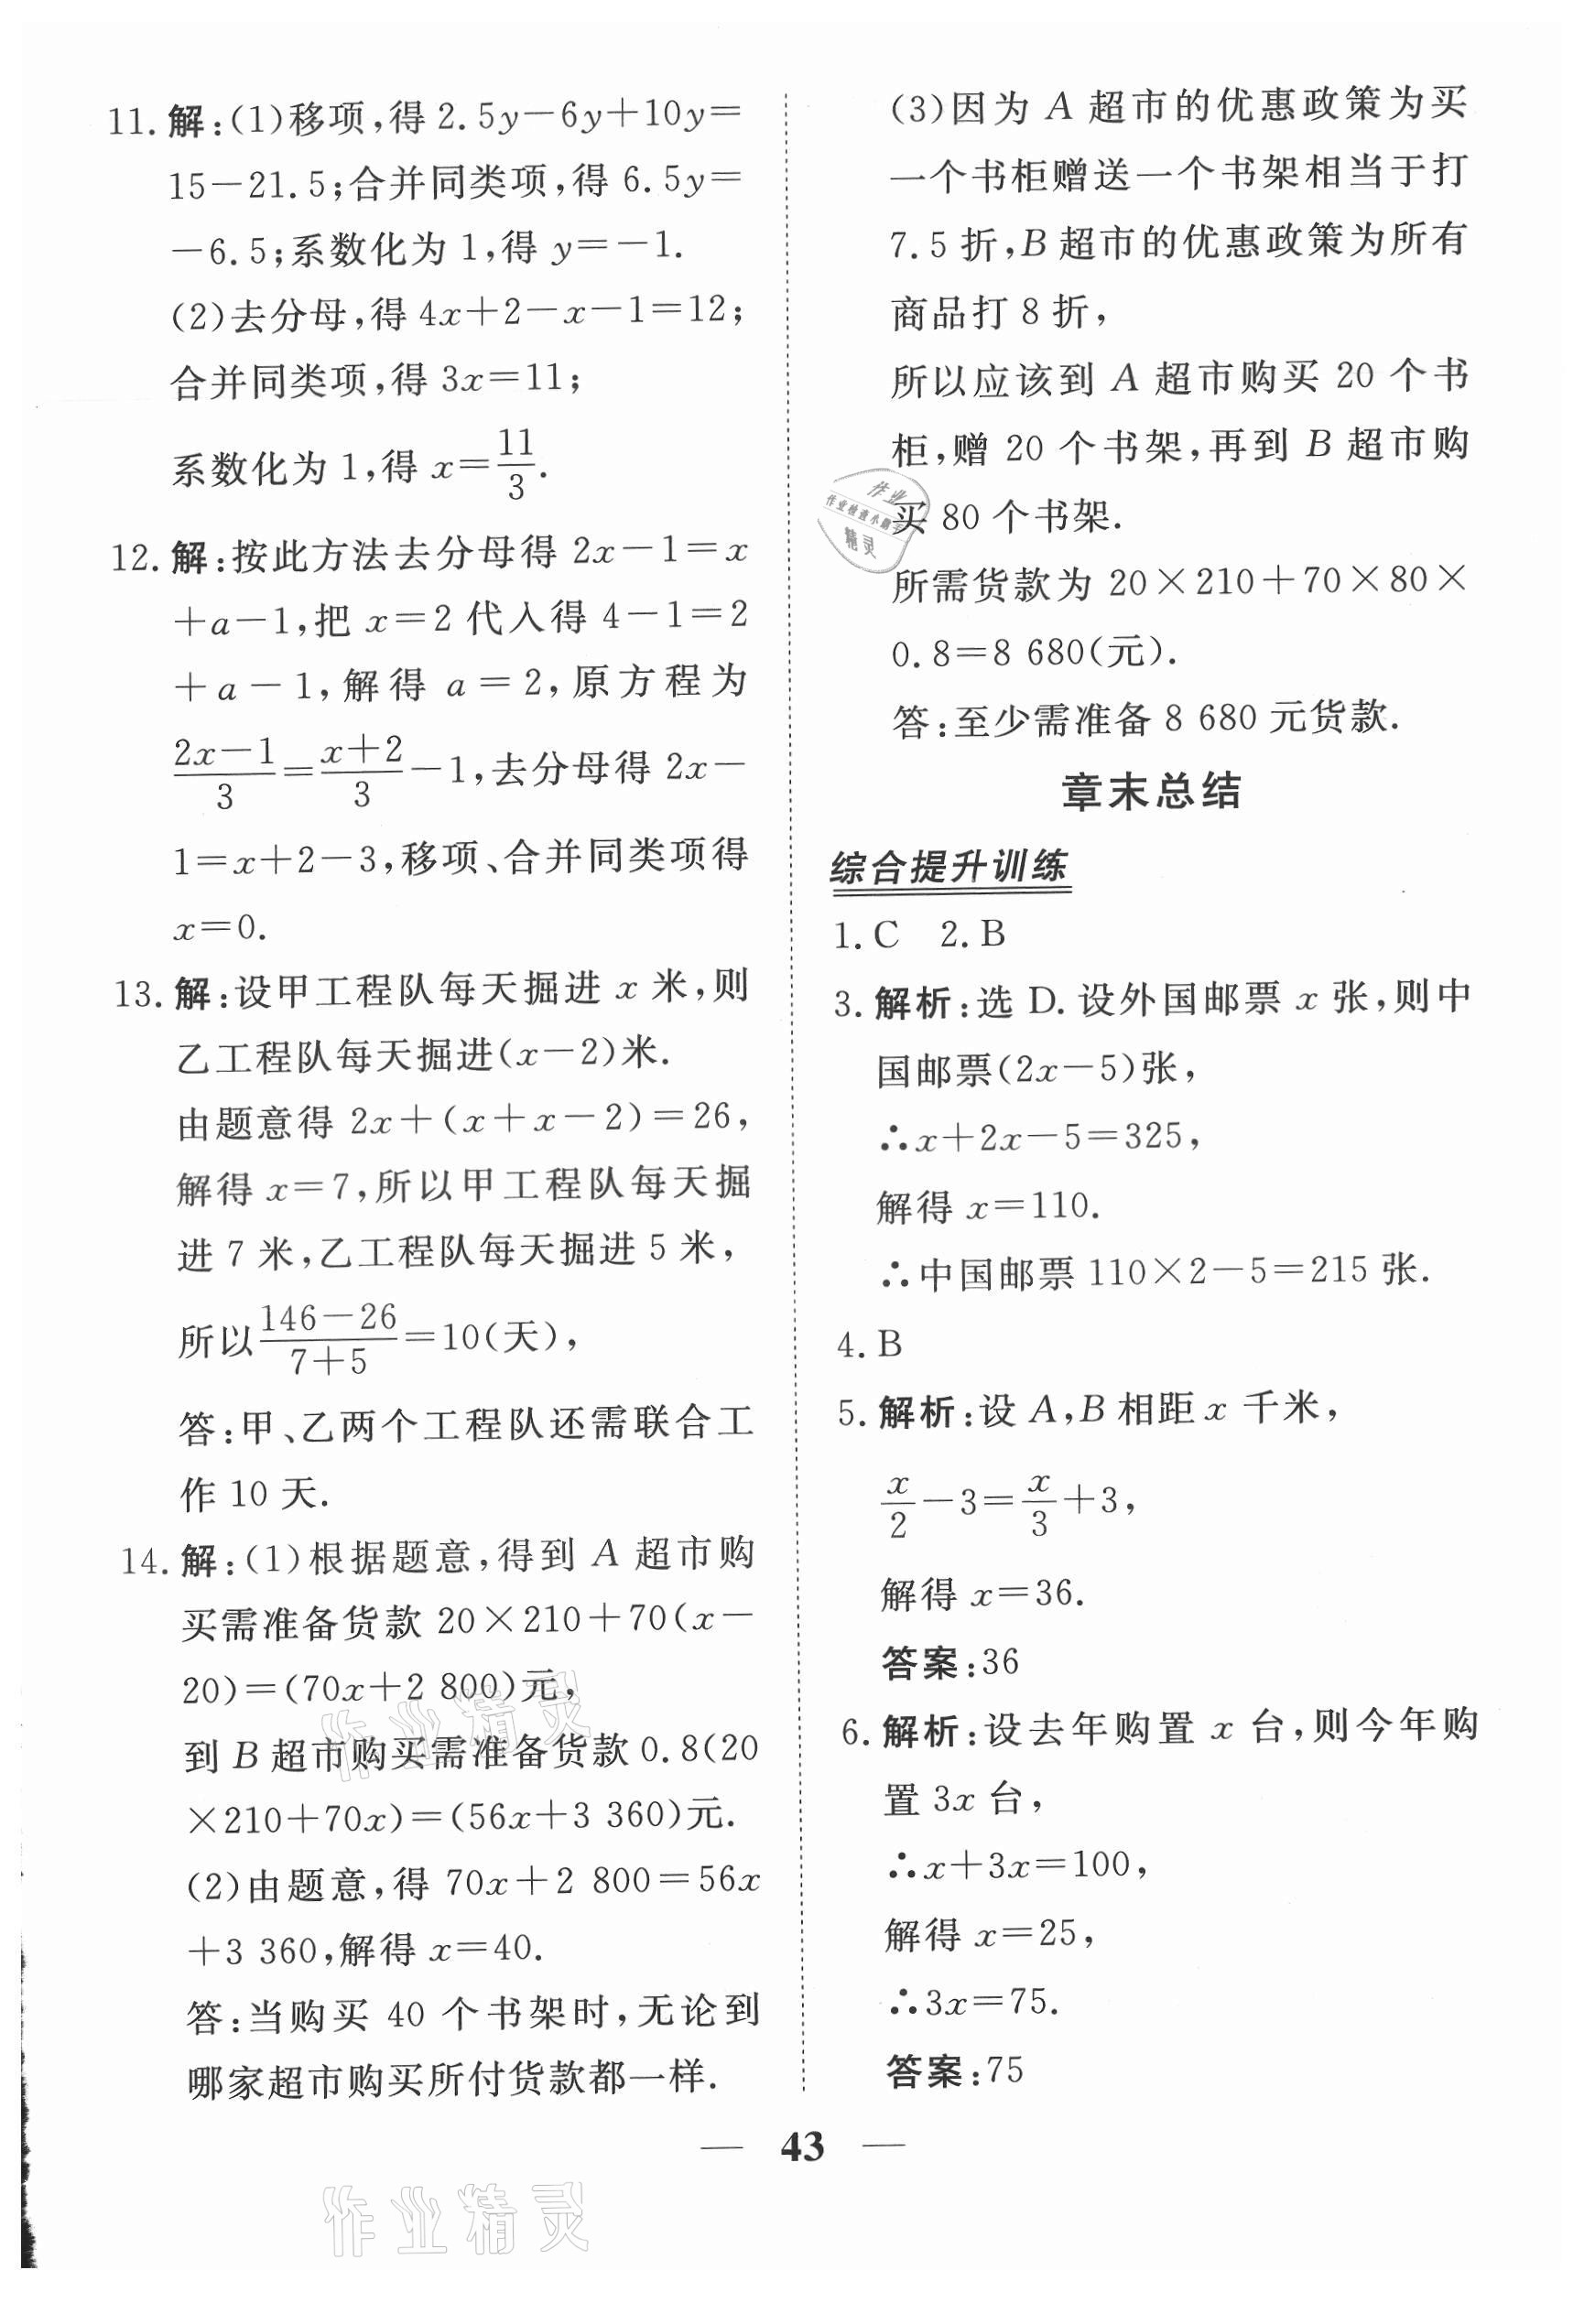 11. 解:(1)移项,得 2.5y－6y＋10y＝
15－21.5;合并同类项,得 6.5y＝
－6.5;系数化为 1,得 y＝－1.
(2)去分母,得 4x＋2－x－1＝12;
合并同类项,得 3x＝11;
系数化为 1,得 x＝11/3.
12. 解:按此方法去分母得 2x－1＝x
＋a－1,把 x＝2 代入得 4－1＝2
＋a－1,解得 a＝2,原方程为
(2x－1)/3＝(x＋2)/3－1,去分母得 2x－
1＝x＋2－3,移项、合并同类项得
x＝0.
13. 解:设甲工程队每天掘进 x 米,则
乙工程队每天掘进(x－2)米.
由题意得 2x＋(x＋x－2)＝26,
解得 x＝7,所以甲工程队每天掘
进 7 米,乙工程队每天掘进 5 米,
所以(146－26)/(7＋5)＝10(天),
答:甲、乙两个工程队还需联合工
作 10 天.
14. 解:(1)根据题意,得到 A 超市购
买需准备货款 20×210＋70(x－
20)＝(70x＋2 800)元,
到 B 超市购买需准备货款 0.8(20
×210＋70x)＝(56x＋3 360)元.
(2)由题意,得 70x＋2 800＝56x
＋3 360,解得 x＝40.
答:当购买 40 个书架时,无论到
哪家超市购买所付货款都一样.
(3)因为 A 超市的优惠政策为买
一个书柜赠送一个书架相当于打
7.5 折,B 超市的优惠政策为所有
商品打 8 折,
所以应该到 A 超市购买 20 个书
柜,赠 20 个书架,再到 B 超市购
买 80 个书架.
所需货款为 20×210＋70×80×
0.8＝8 680(元).
答:至少需准备 8 680 元货款.
章末总结
综合提升训练
1. C 2. B
3. 解析:选 D. 设外国邮票 x 张,则中
国邮票(2x－5)张,
∴x＋2x－5＝325,
解得 x＝110.
∴中国邮票 110×2－5＝215 张.
4. B
5. 解析:设 A,B 相距 x 千米,
x/2－3＝x/3＋3,
解得 x＝36.
答案:36
6. 解析:设去年购置 x 台,则今年购
置 3x 台,
∴x＋3x＝100,
解得 x＝25,
∴3x＝75.
答案:75
— 43 —
作业
作业检查小助手
精灵
作业精灵
作业精灵